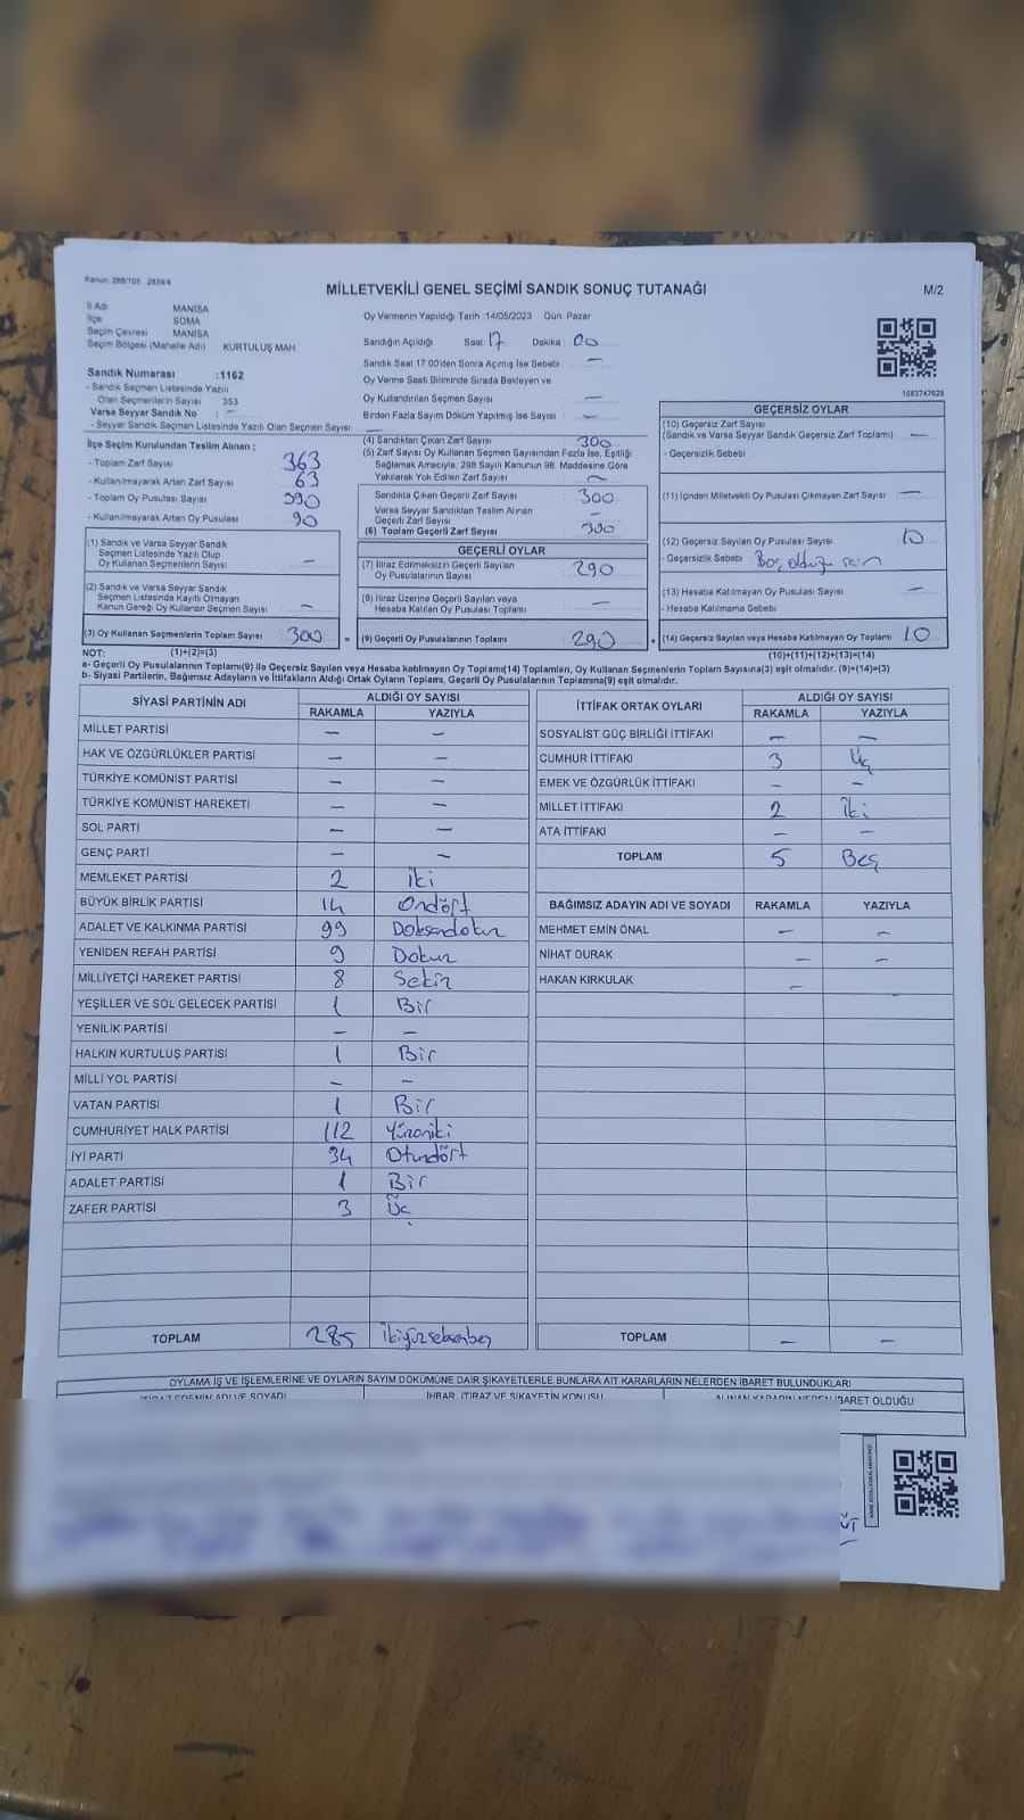 Kanun: 298/105 2839/4
MİLLETVEKİLİ GENEL SEÇİMİ SANDIK SONUÇ TUTANAĞI
M/2
İl Adı MANİSA
İlçe SOMA
Seçim Çevresi MANİSA
Seçim Bölgesi (Mahalle Adı) KURTULUŞ MAH
Sandık Numarası :1162
- Sandık Seçmen Listesinde Yazılı
Olan Seçmenlerin Sayısı 353
Varsa Seyyar Sandık No : -
- Seyyar Sandık Seçmen Listesinde Yazılı Olan Seçmen Sayısı: —
Oy Vermenin Yapıldığı Tarih :14/05/2023 Gün: Pazar
Sandığın Açıldığı Saat: 17 Dakika: 00
Sandık Saat 17:00'den Sonra Açılmış İse Sebebi —
Oy Verme Saati Bitiminde Sırada Bekleyen ve
Oy Kullandırılan Seçmen Sayısı —
Birden Fazla Sayım Döküm Yapılmış İse Sayısı —
İlçe Seçim Kurulundan Teslim Alınan :
- Toplam Zarf Sayısı 363
- Kullanılmayarak Artan Zarf Sayısı 63
- Toplam Oy Pusulası Sayısı 390
- Kullanılmayarak Artan Oy Pusulası 90
(1) Sandık ve Varsa Seyyar Sandık
Seçmen Listesinde Yazılı Olup
Oy Kullanan Seçmenlerin Sayısı —
(2) Sandık ve Varsa Seyyar Sandık
Seçmen Listesinde Kayıtlı Olmayan
Kanun Gereği Oy Kullanan Seçmen Sayısı —
(3) Oy Kullanan Seçmenlerin Toplam Sayısı 300 =
(4) Sandıktan Çıkan Zarf Sayısı 300
(5) Zarf Sayısı Oy Kullanan Seçmen Sayısından Fazla İse, Eşitliği
Sağlamak Amacıyla; 298 Sayılı Kanunun 98. Maddesine Göre
Yakılarak Yok Edilen Zarf Sayısı —
Sandıkta Çıkan Geçerli Zarf Sayısı 300
Varsa Seyyar Sandıktan Teslim Alınan
Geçerli Zarf Sayısı —
(6) Toplam Geçerli Zarf Sayısı 300
GEÇERLİ OYLAR
(7) İtiraz Edilmeksizin Geçerli Sayılan
Oy Pusulalarının Sayısı 290
(8) İtiraz Üzerine Geçerli Sayılan veya
Hesaba Katılan Oy Pusulası Toplamı —
(9) Geçerli Oy Pusulalarının Toplamı 290 +
GEÇERSİZ OYLAR
(10) Geçersiz Zarf Sayısı
(Sandık ve Varsa Seyyar Sandık Geçersiz Zarf Toplamı) —
- Geçersizlik Sebebi
(11) İçinden Milletvekili Oy Pusulası Çıkmayan Zarf Sayısı —
(12) Geçersiz Sayılan Oy Pusulası Sayısı 10
- Geçersizlik Sebebi Boş olduğu için
(13) Hesaba Katılmayan Oy Pusulası Sayısı —
- Hesaba Katılmama Sebebi
(14) Geçersiz Sayılan veya Hesaba Katılmayan Oy Toplamı 10
NOT: (1)+(2)=(3) (10)+(11)+(12)+(13)=(14)
a- Geçerli Oy Pusulalarının Toplamı(9) ile Geçersiz Sayılan veya Hesaba katılmayan Oy Toplamı(14) Toplamları, Oy Kullanan Seçmenlerin Toplam Sayısına(3) eşit olmalıdır. (9)+(14)=(3)
b- Siyasi Partilerin, Bağımsız Adayların ve İttifakların Aldığı Ortak Oyların Toplamı, Geçerli Oy Pusulalarının Toplamına(9) eşit olmalıdır.
SİYASİ PARTİNİN ADI ALDIĞI OY SAYISI
RAKAMLA YAZIYLA
MİLLET PARTİSİ — —
HAK VE ÖZGÜRLÜKLER PARTİSİ — —
TÜRKİYE KOMÜNİST PARTİSİ — —
TÜRKİYE KOMÜNİST HAREKETİ — —
SOL PARTİ — —
GENÇ PARTİ — —
MEMLEKET PARTİSİ 2 iki
BÜYÜK BİRLİK PARTİSİ 14 Ondört
ADALET VE KALKINMA PARTİSİ 99 Doksandokuz
YENİDEN REFAH PARTİSİ 9 Dokuz
MİLLİYETÇİ HAREKET PARTİSİ 8 Sekiz
YEŞİLLER VE SOL GELECEK PARTİSİ 1 Bir
YENİLİK PARTİSİ — —
HALKIN KURTULUŞ PARTİSİ 1 Bir
MİLLİ YOL PARTİSİ — —
VATAN PARTİSİ 1 Bir
CUMHURİYET HALK PARTİSİ 112 Yüzoniki
İYİ PARTİ 34 Otuzdört
ADALET PARTİSİ 1 Bir
ZAFER PARTİSİ 3 Üç
TOPLAM 285 İkiyüzseksenbeş
İTTİFAK ORTAK OYLARI ALDIĞI OY SAYISI
RAKAMLA YAZIYLA
SOSYALİST GÜÇ BİRLİĞİ İTTİFAKI — —
CUMHUR İTTİFAKI 3 Üç
EMEK VE ÖZGÜRLÜK İTTİFAKI — —
MİLLET İTTİFAKI 2 İki
ATA İTTİFAKI — —
TOPLAM 5 Beş
BAĞIMSIZ ADAYIN ADI VE SOYADI RAKAMLA YAZIYLA
MEHMET EMİN ÖNAL — —
NİHAT DURAK — —
HAKAN KIRKULAK —
TOPLAM — —
OYLAMA İŞ VE İŞLEMLERİNE VE OYLARIN SAYIM DÖKÜMÜNE DAİR ŞİKAYETLERLE BUNLARA AİT KARARLARIN NELERDEN İBARET BULUNDUKLARI
İTİRAZ EDENİN ADI VE SOYADI İHBAR, İTİRAZ VE ŞİKAYETİN KONUSU ALINAN KARARIN NEDEN İBARET OLDUĞU